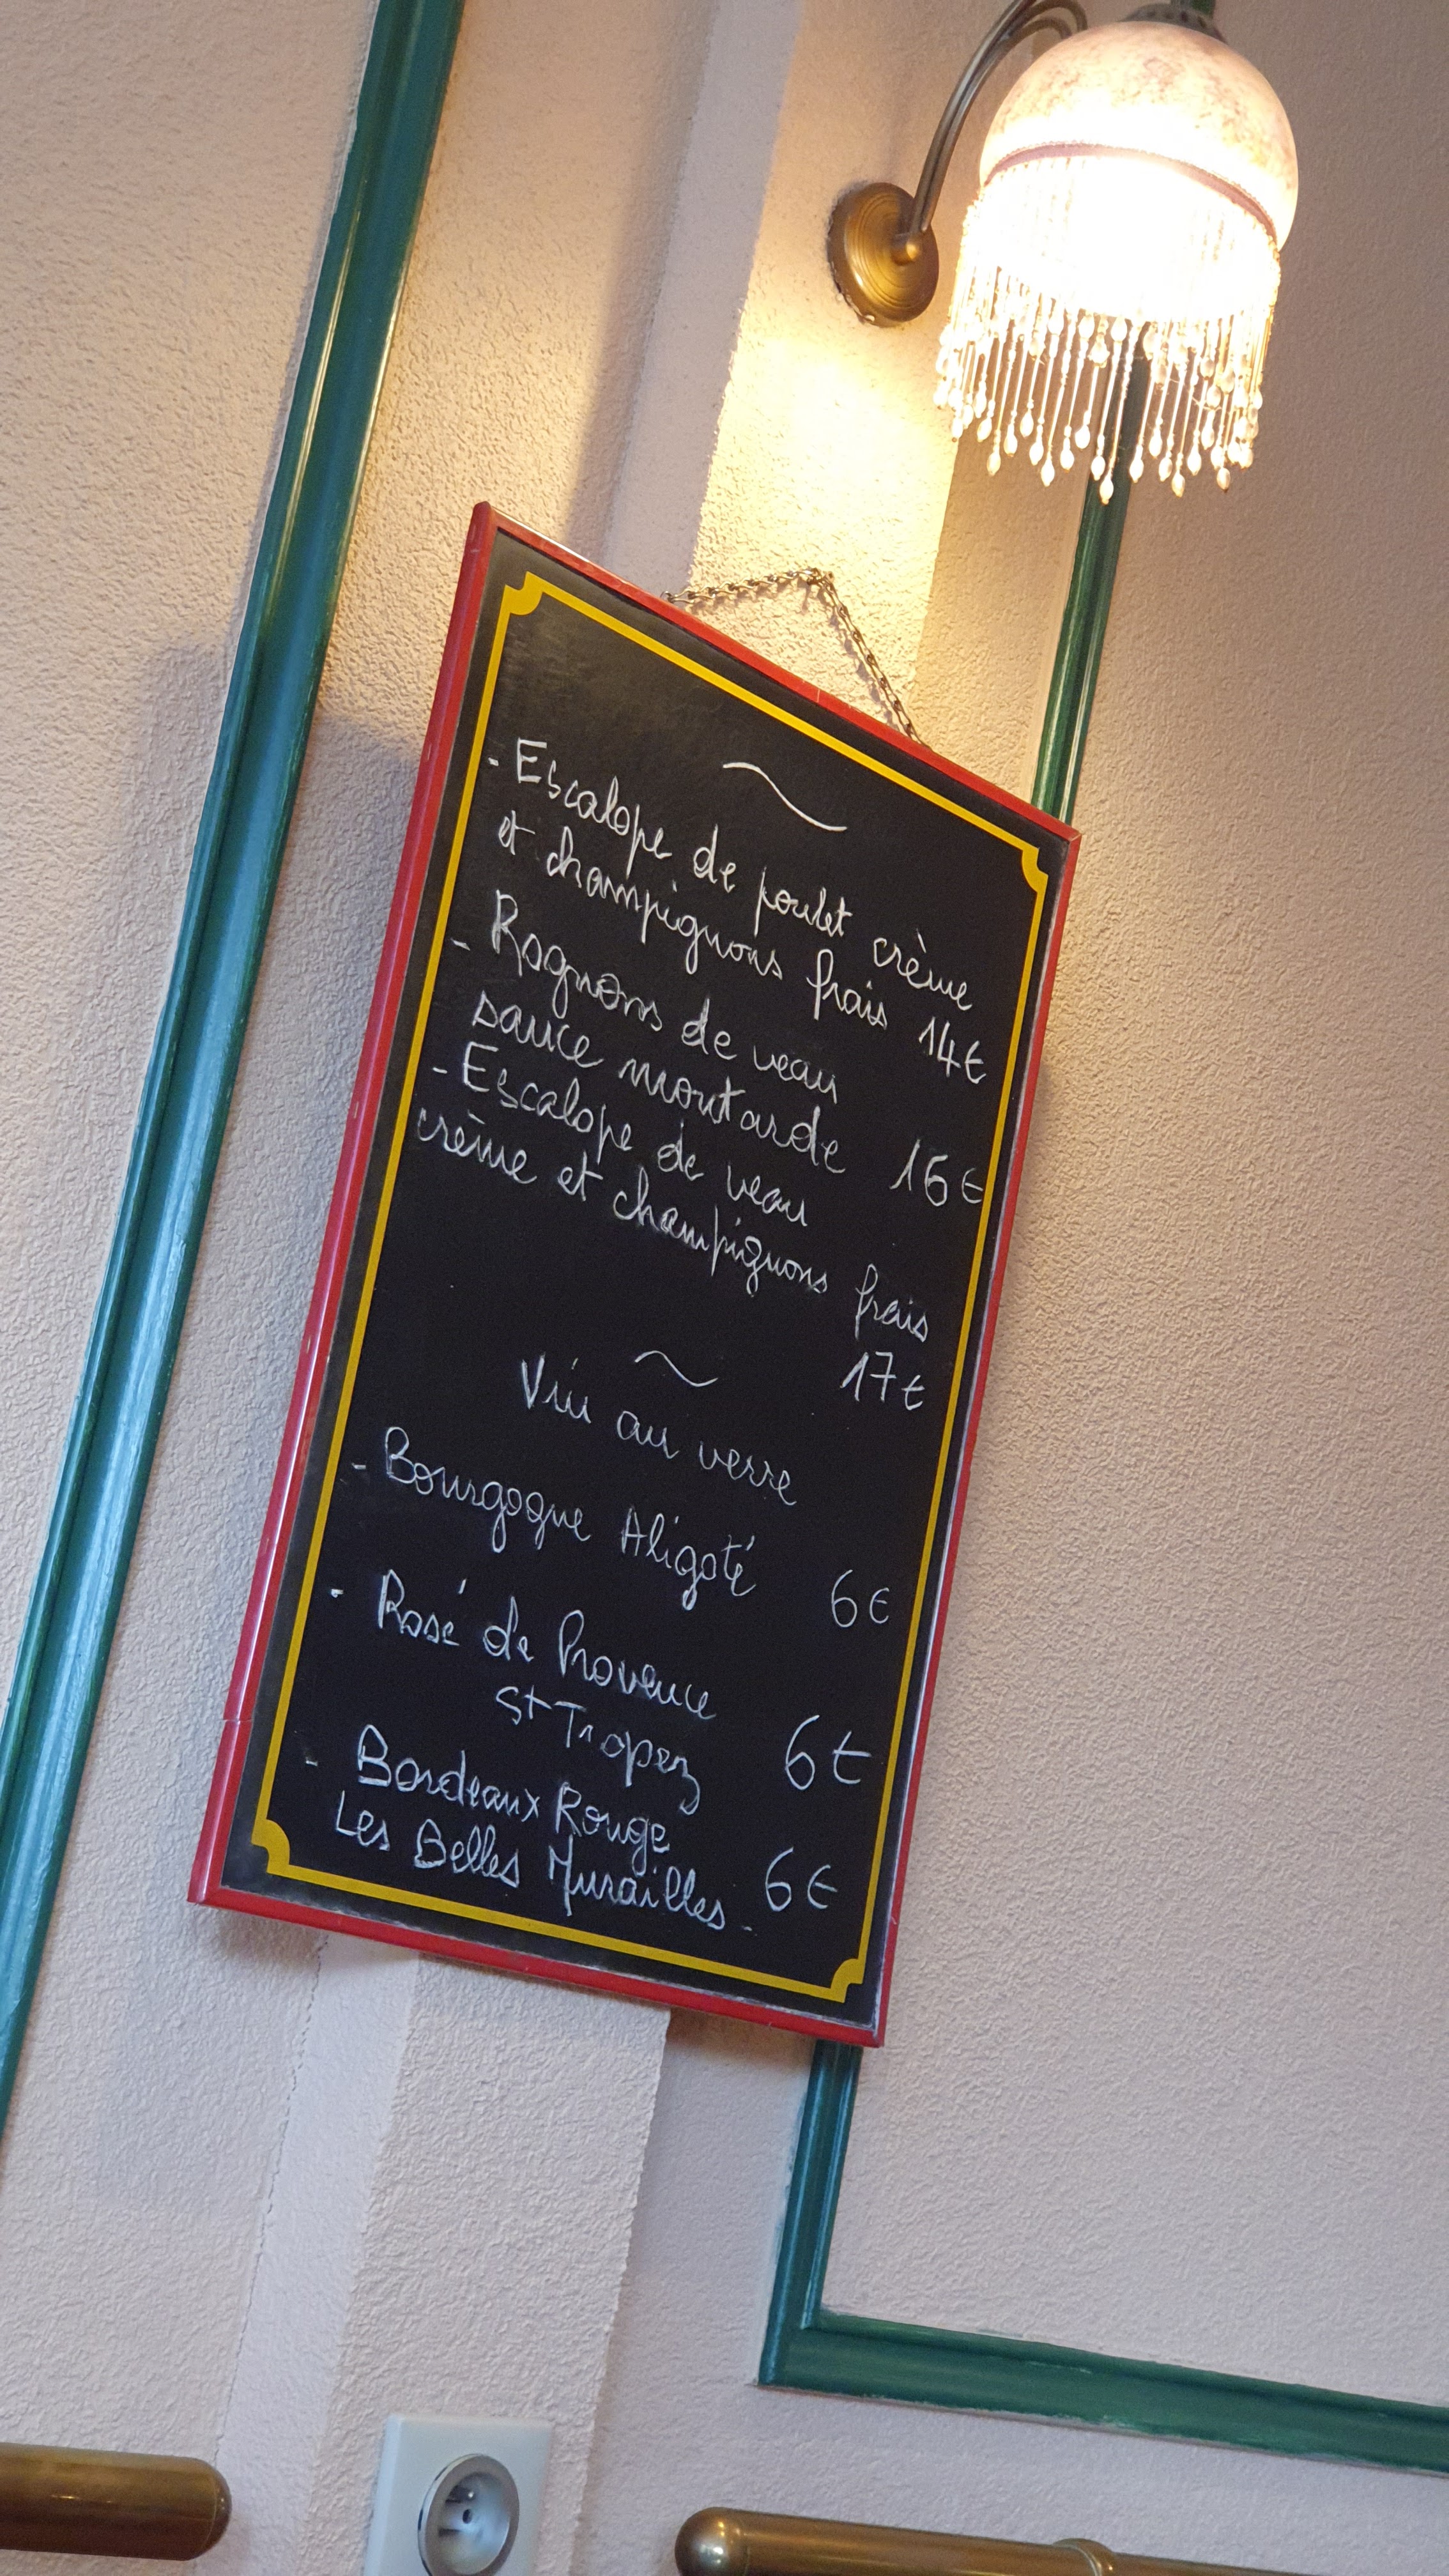 - Escalope de poulet crème
et champignons frais 14€
- Rognons de veau
sauce moutarde 16€
- Escalope de veau
crème et champignons frais
17€
~
Vin au verre
- Bourgogne Aligoté 6€
- Rosé de Provence
St Tropez 6€
- Bordeaux Rouge
Les Belles Murailles - 6€